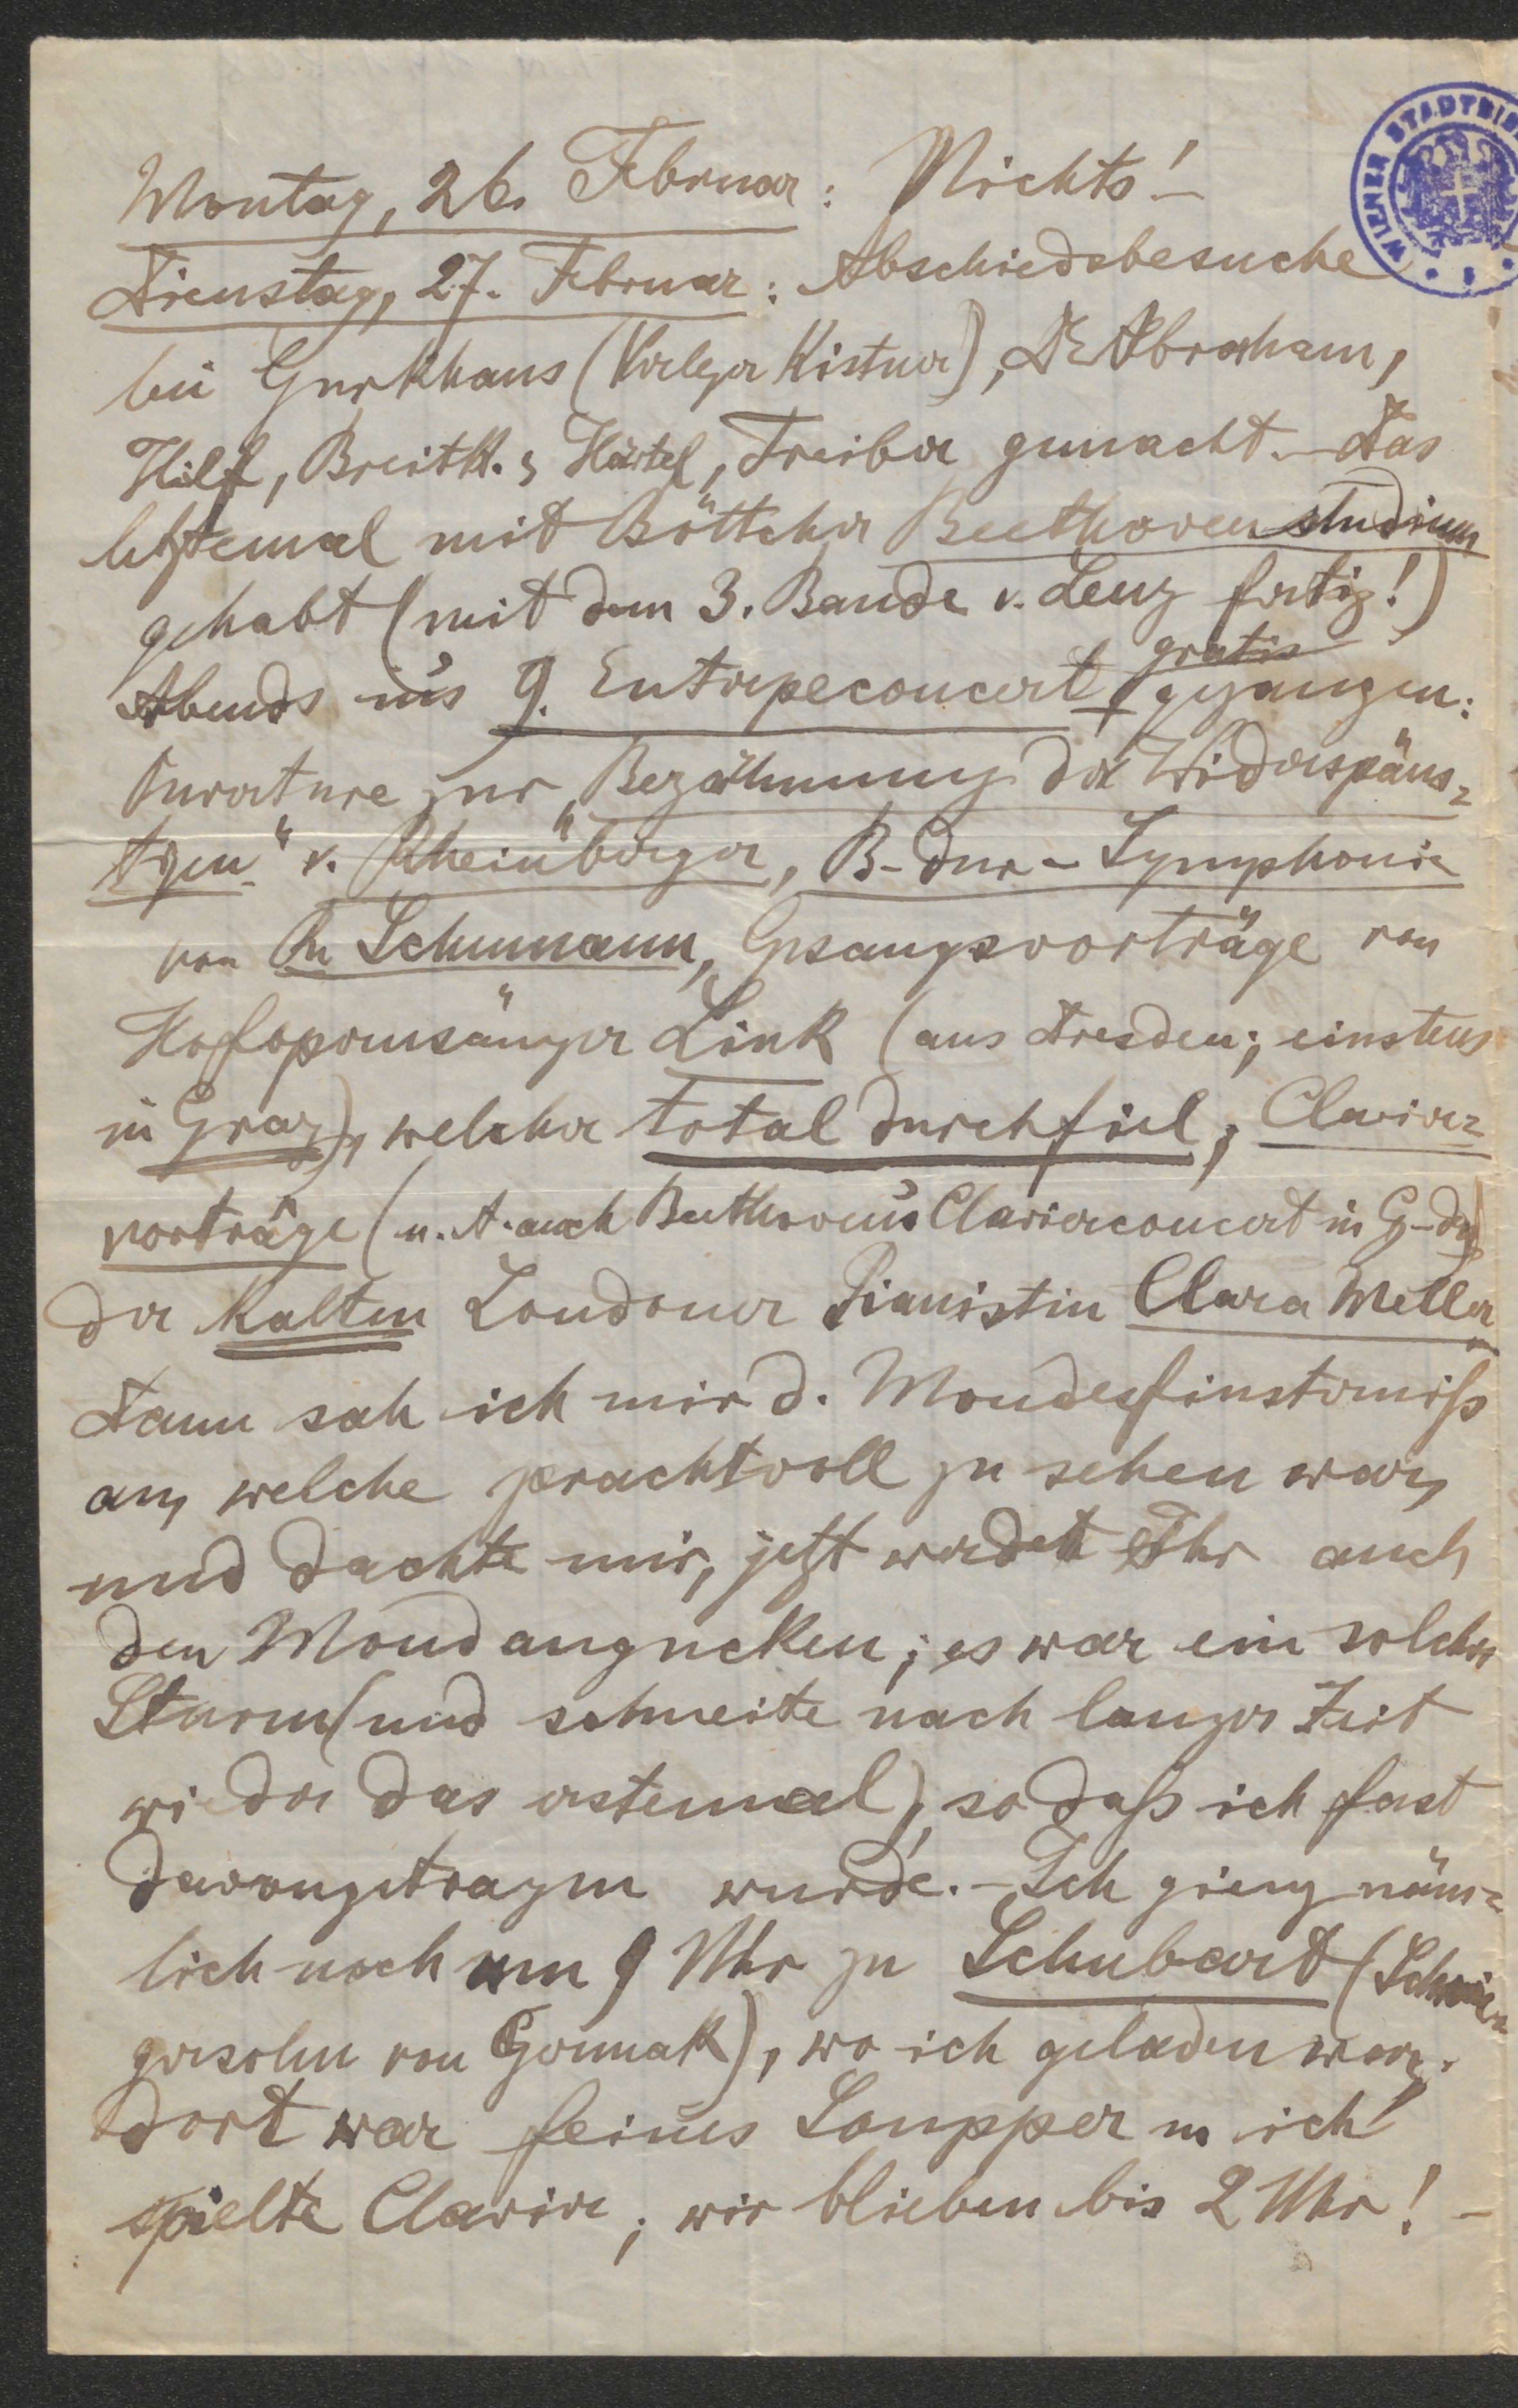 WIENER STADTBI
Montag, 26. Februar: Nichts! –
Dienstag, 27. Februar: Abschiedsbesuche
bei Gurkhaus (Verleger Kistner), Dr Abraham,
Hilf, Breitk. & Härtel, Treiber gemacht. – Das
letztemal mit Böttcher Beethovenstudium
gehabt (mit dem 3. Bande v. Lenz fertig!)
gratis
Abends in's 9. Euterpeconcert gegangen:
Ouverture zur „Bezähmung der Widerspäns-
tigen" v. Rheinberger, B-dur-Symphonie
von R. Schumann, Gesangsvorträge von
Hofopernsänger Link (aus Dresden; einstens
in Graz), welcher total durchfiel; Clavier-
vorträge (u. A. auch Beethoven's Clavierconcert in G-dur)
der kalten Londoner Pianistin Clara Meller.
Dann sah ich mir d. Mondesfinsterniß
an, welche prachtvoll zu sehen war,
und dachte mir, jetzt werdet Ihr auch
den Mond angucken; es war ein solcher
Sturm (und schneite nach langer Zeit
wieder das erstemal), so daß ich fast
davongetragen wurde. – Ich gieng näm-
lich noch um 9 Uhr zu Schubart (Schwie-
gersohn von Gormak), wo ich geladen war;
dort war feines Soupper u ich
spielte Clavier; wir blieben bis 2 Uhr! –